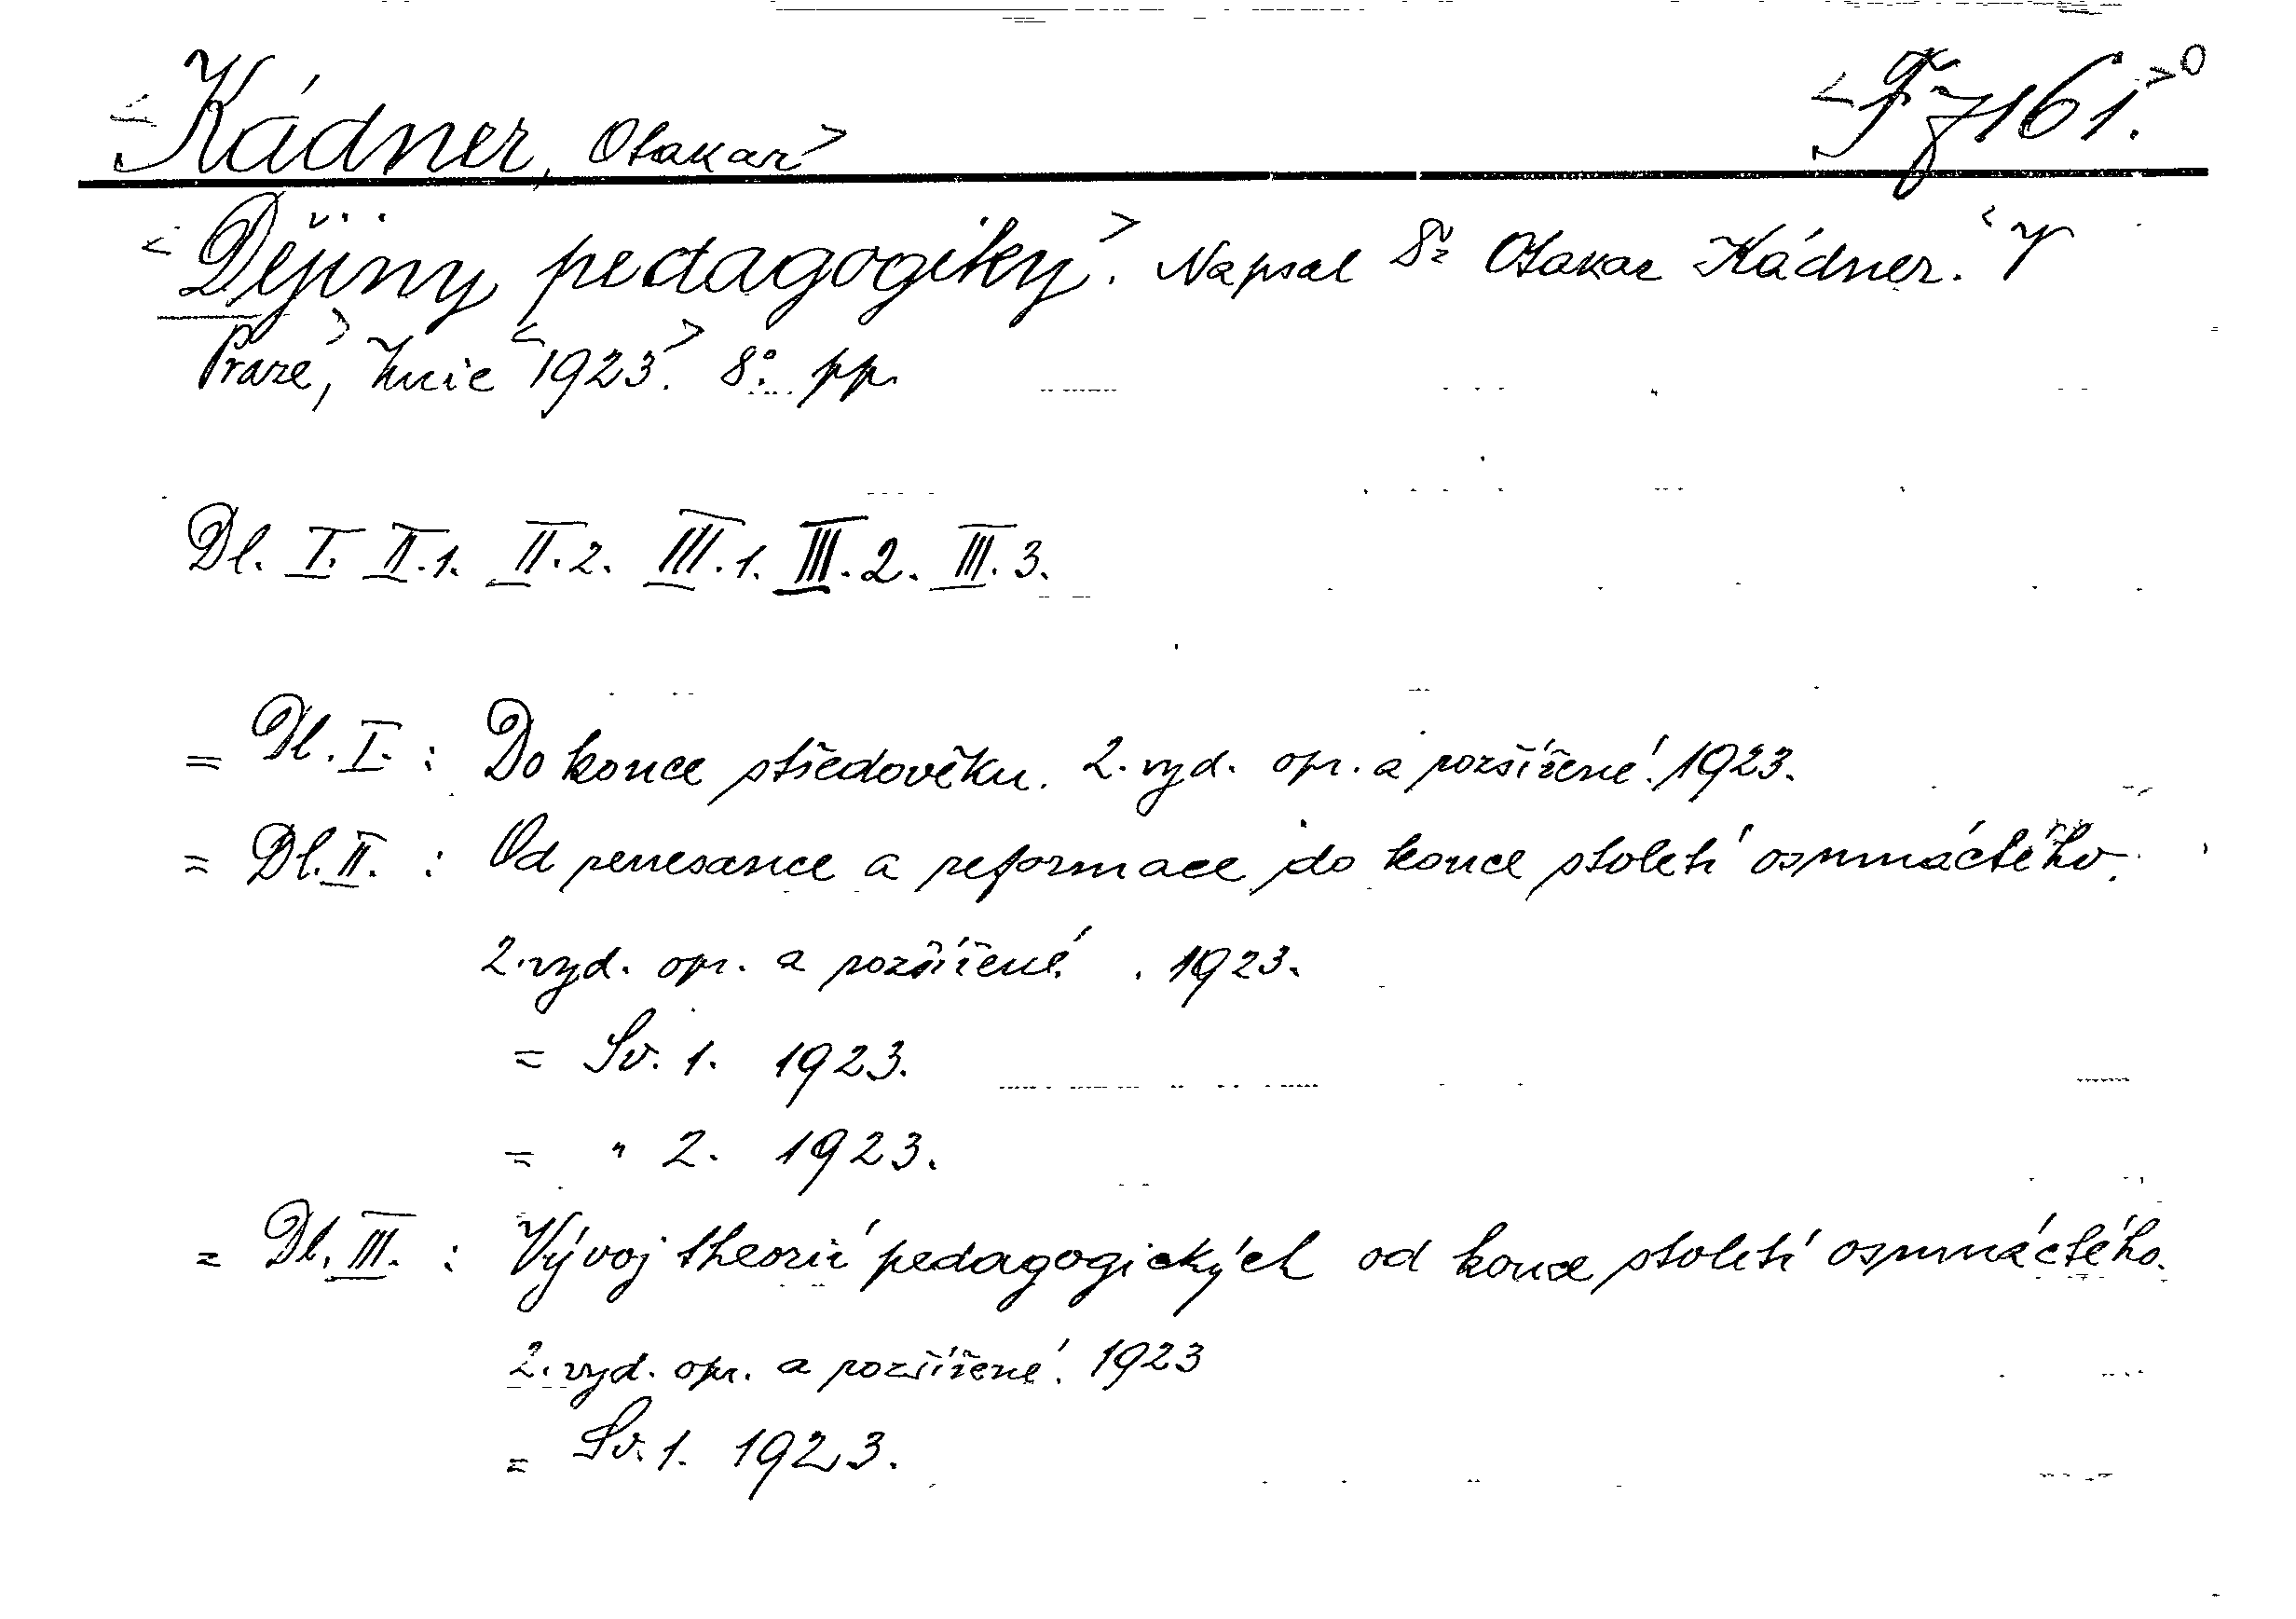 <Kádner, Otakar> <Fz161.>⁰
<Dějiny pedagogiky>. Napsal Dr Otakar Kádner. <V
Praze>, Unie <1923>. 8°. pp.
Dl. I. II.1. II.2. III.1. III.2. III.3.
= Dl. I. : Do konce středověku. 2. vyd. opr. a rozšířené. 1923.
= Dl. II. : Od renesance a reformace do konce století osmnáctého.
2. vyd. opr. a rozšířené. 1923.
= Sv. 1. 1923.
= " 2. 1923.
= Dl. III. : Vývoj theorií pedagogických od konce století osmnáctého.
2. vyd. opr. a rozšířené. 1923
= Sv. 1. 1923.